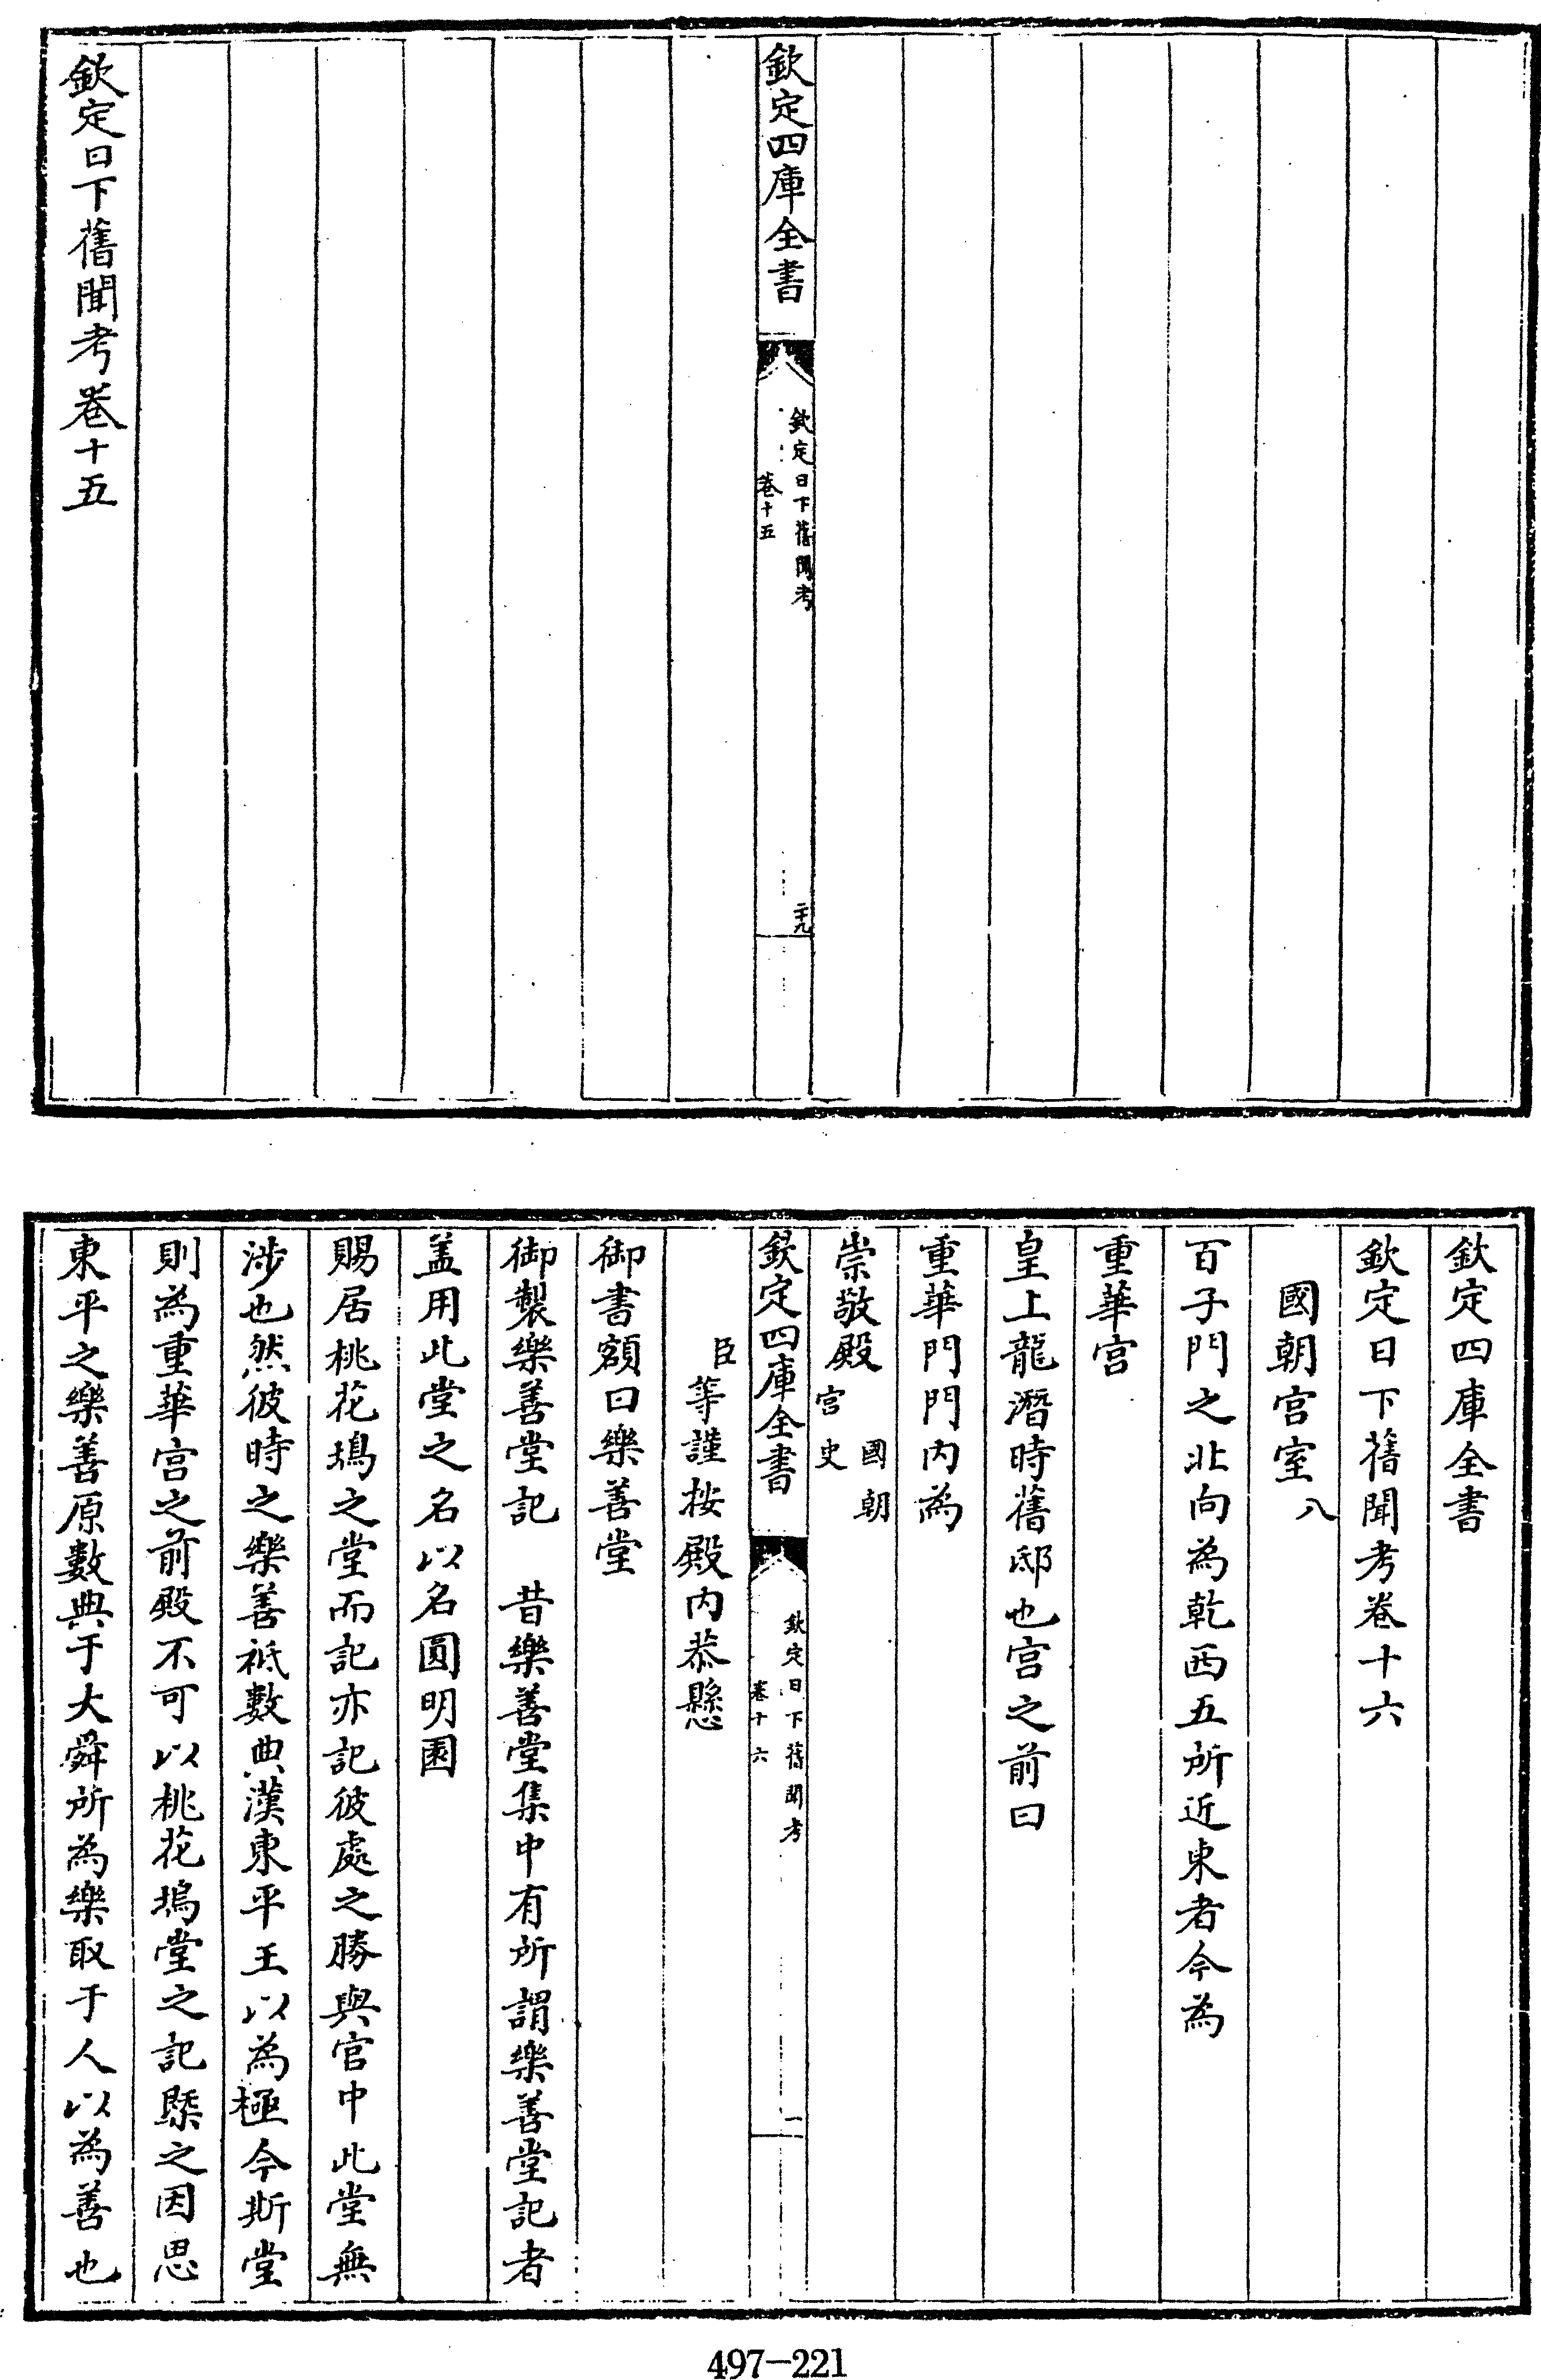 欽定四庫全書
欽定日下舊聞考
卷十五
二十九
欽定日下舊聞考卷十五
欽定四庫全書
欽定日下舊聞考卷十六
國朝宮室八
百子門之北向為乾西五所近東者今為
重華宮
皇上龍潛時舊邸也宮之前曰
重華門門內為
崇敬殿國朝宮史
欽定四庫全書
欽定日下舊聞考
卷十六
一
臣等謹按殿內恭懸
御書額曰樂善堂
御製樂善堂記 昔樂善堂集中有所謂樂善堂記者
盖用此堂之名以名圓明園
賜居桃花塢之堂而記亦記彼處之勝與宮中此堂無
涉也然彼時之樂善祇數典漢東平王以為極今斯堂
則為重華宮之前殿不可以桃花塢堂之記槩之因思
東平之樂善原數典于大舜所為樂取于人以為善也
497-221